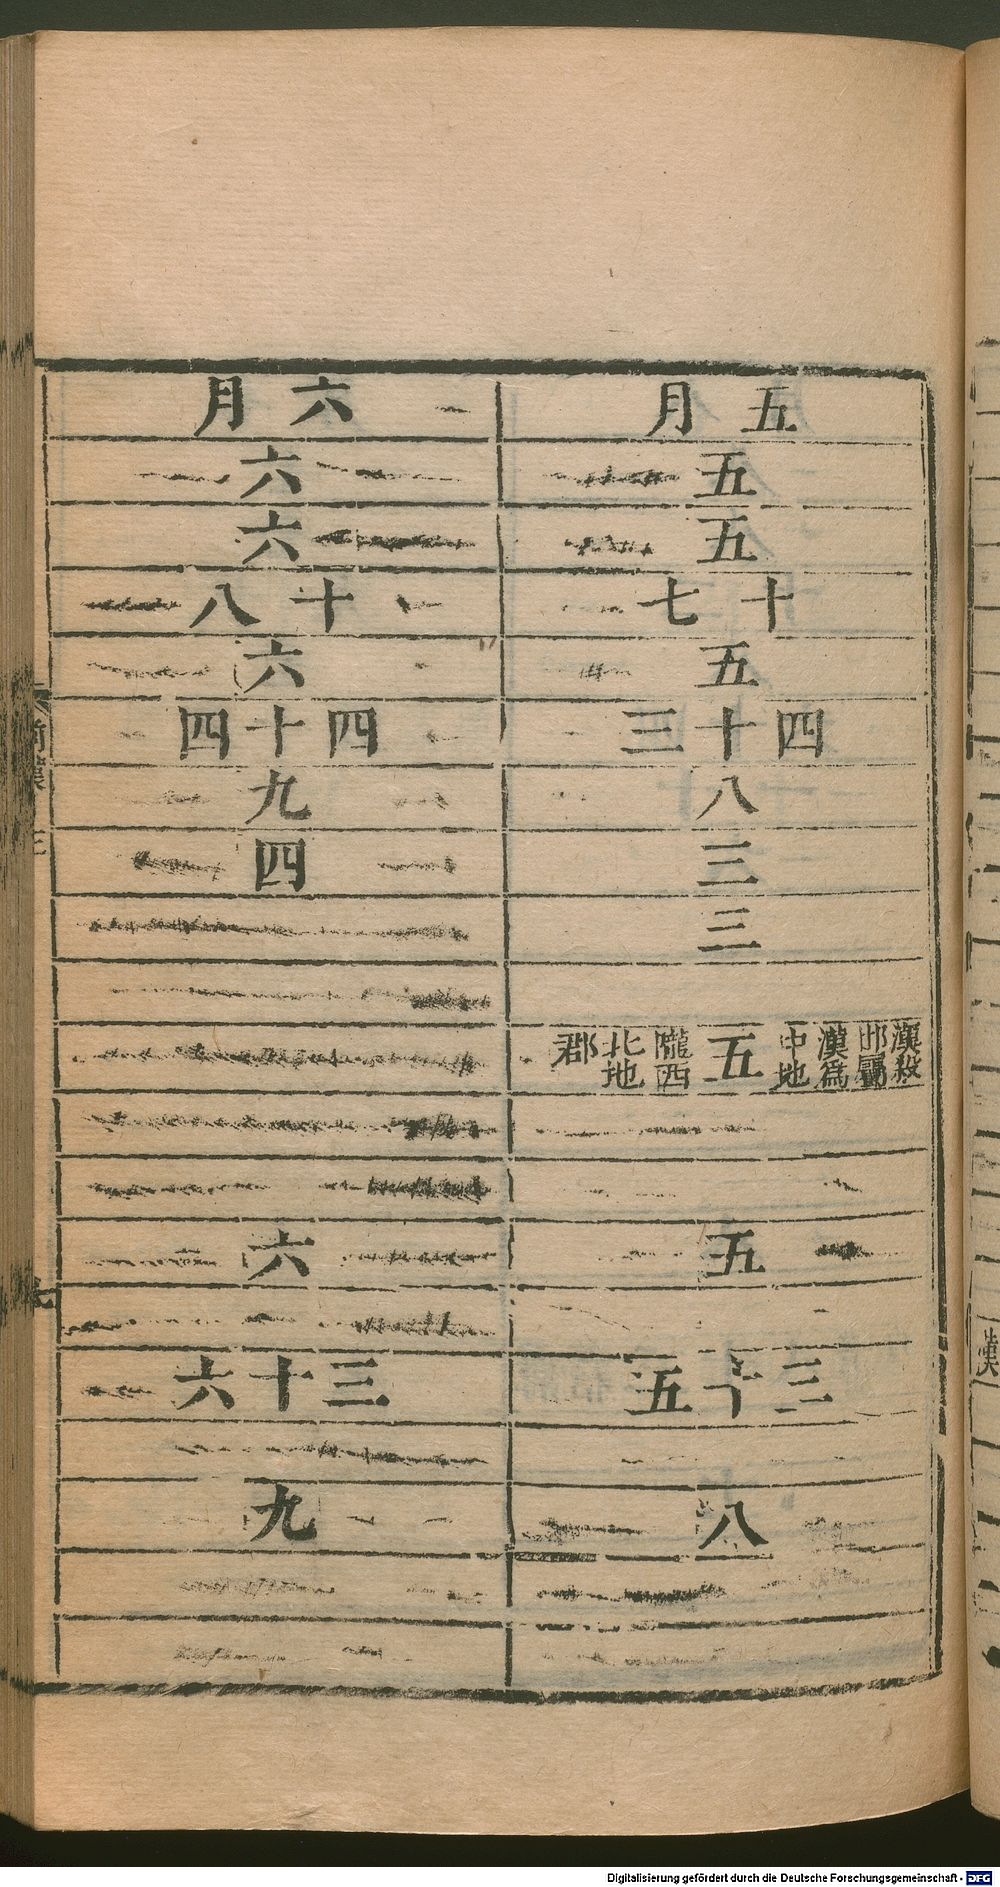 五月
五
五
十七
五
四十三
八
三
三
漢殺
邯屬
漢爲
中地
五
隴西
北地
郡
五
三十五
八
六月
六
六
十八
六
四十四
九
四
六
三十六
九
前漢
漢
Digitalisierung gefördert durch die Deutsche Forschungsgemeinschaft - DFG